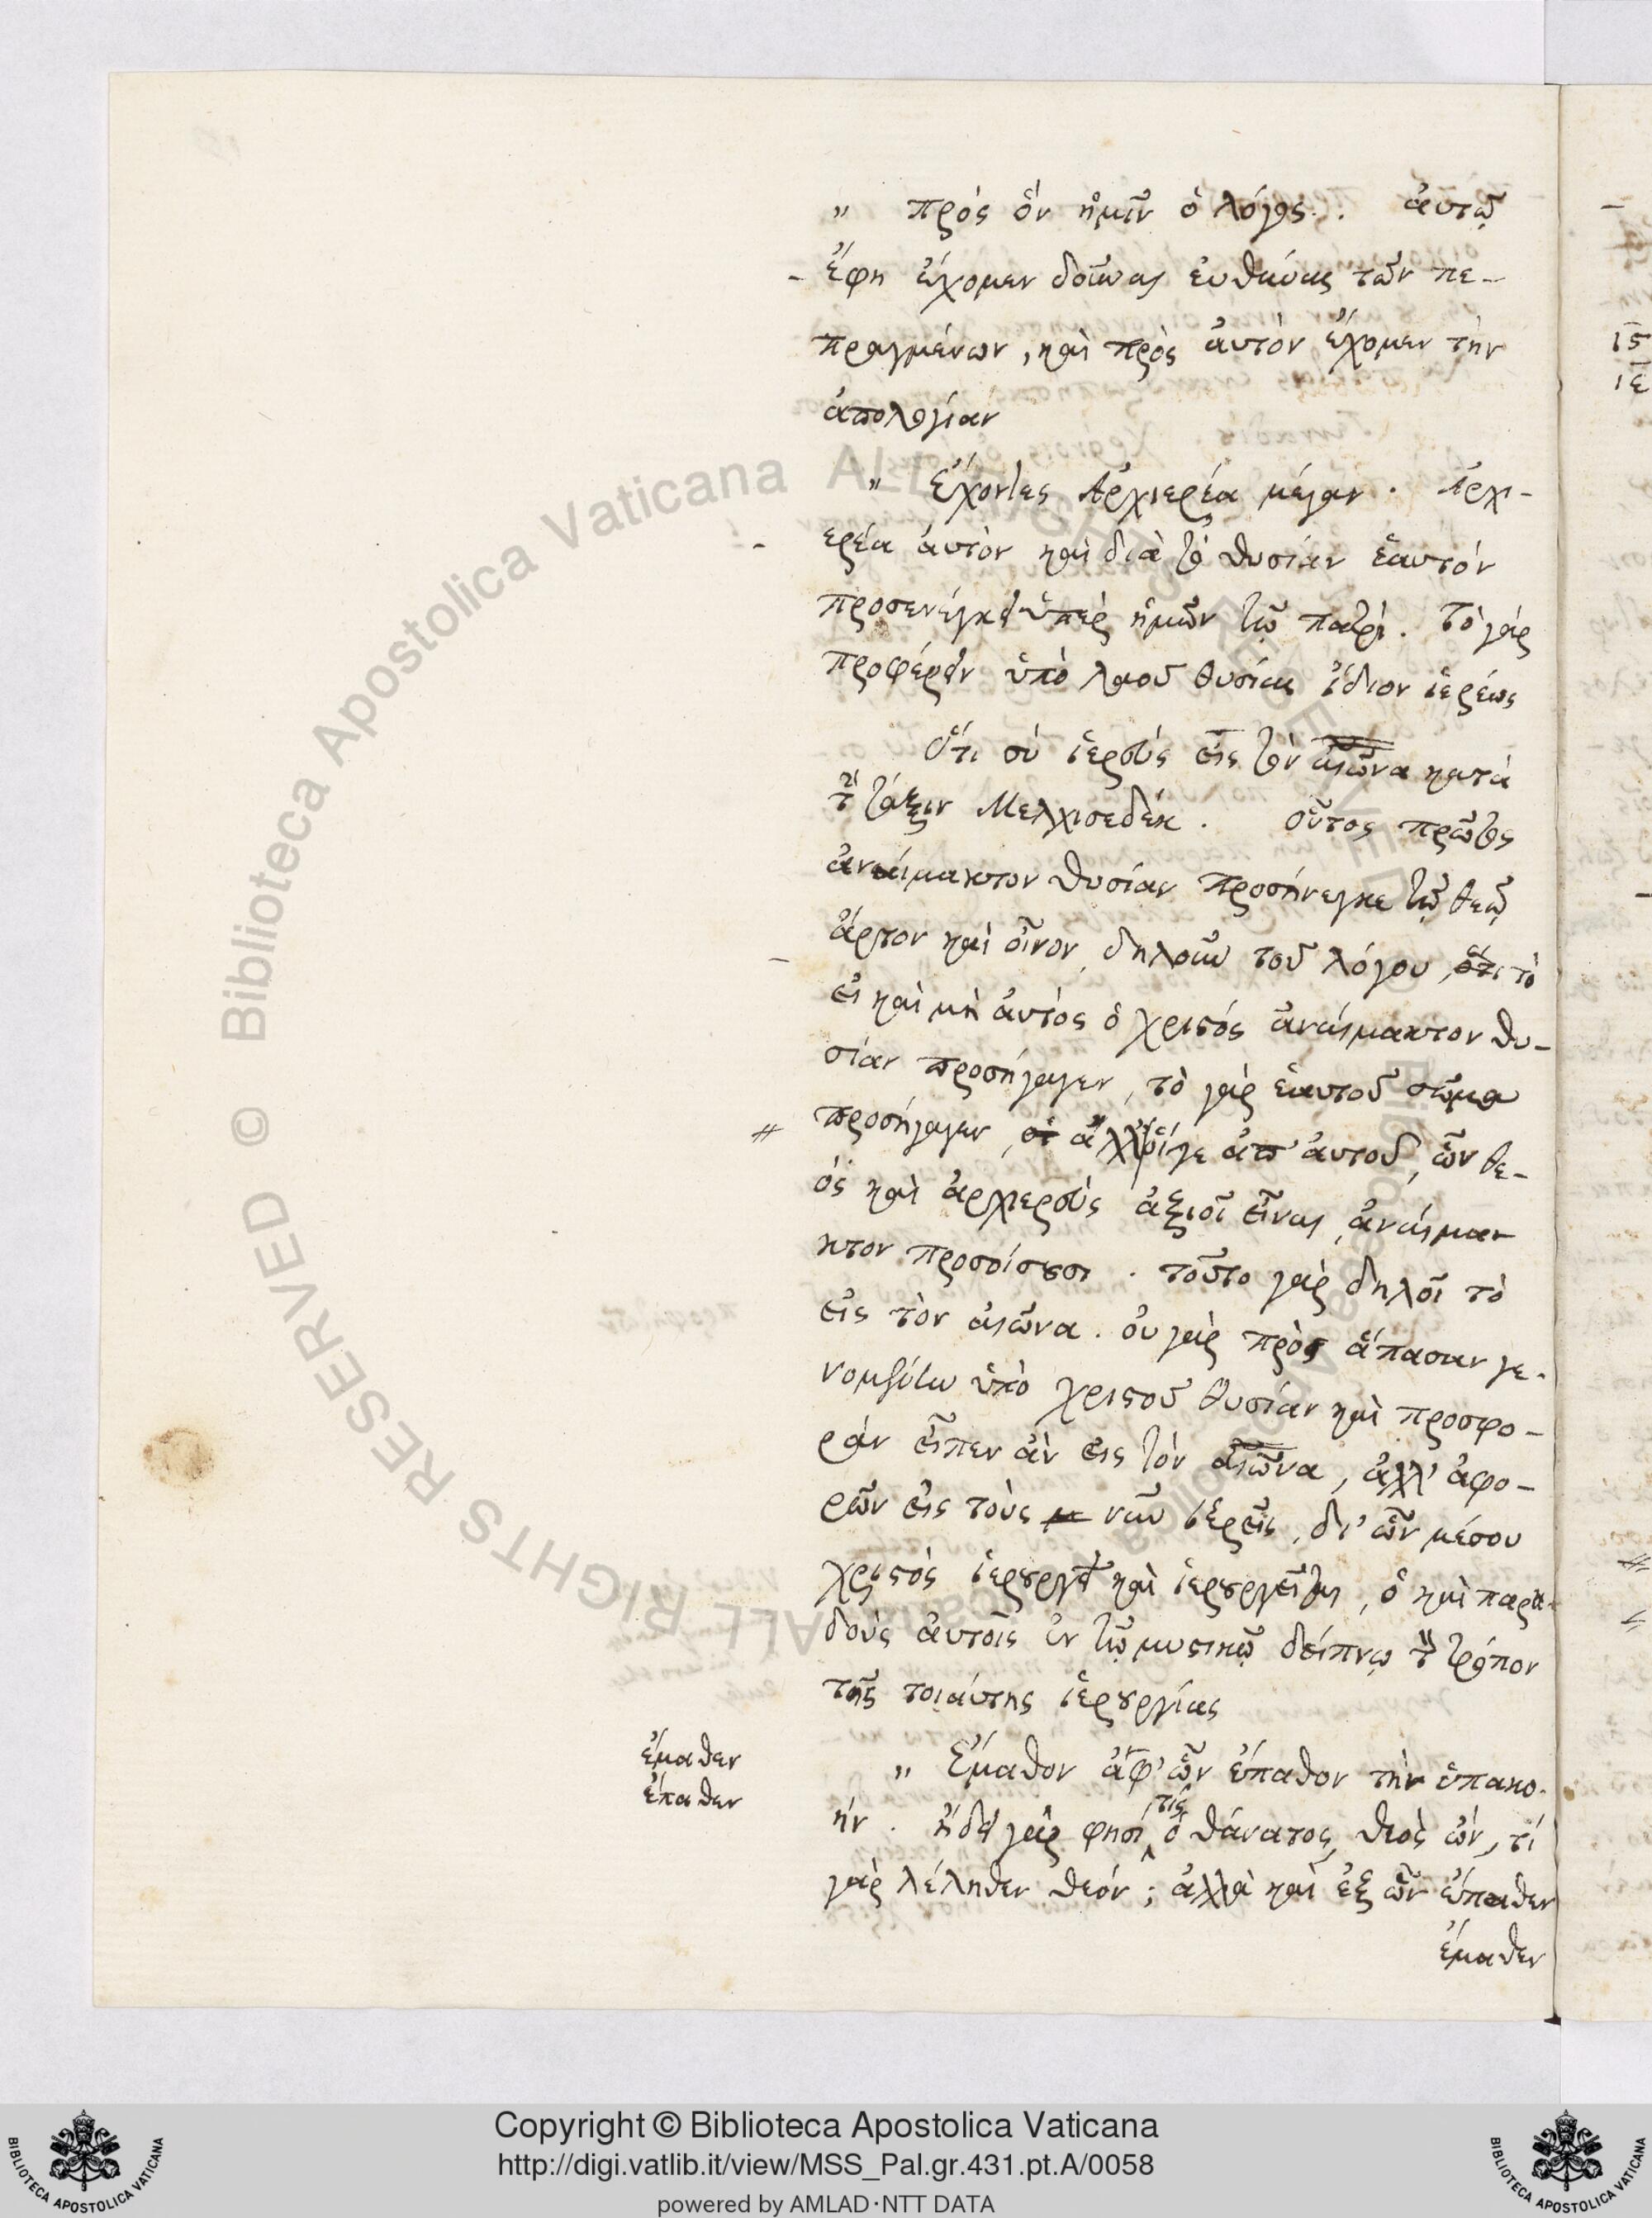 „ πρός ὅν ἡμῖν ὁ λόγος. αὐτῷ
ἔφη ἔχομεν δοῦναι εὐθύνας τῶν πε-
πραγμένων, καὶ πρὸς αὐτὸν ἔχομεν τὴν
ἀπολογίαν
„ Ἔχοντες Ἀρχιερέα μέγαν. Ἀρχι-
ερέα αὐτὸν καὶ διὰ τὸ θυσίαν ἑαυτόν
προσενέγκαι ὑπὲρ ἡμῶν τῷ πατρί. Τὸ γὰρ
προφέρειν ὑπὸ λαοῦ θυσίας ἴδιον ἱερέως
Ὅτι σὺ ἱερεὺς εἰς τὸν αἰῶνα κατὰ
τὴν τάξιν Μελχισεδέκ. οὗτος πρῶτος
ἀναίμακτον θυσίαν προσήνεγκε τῷ θεῷ
ἄρτον καὶ οἶνον, δηλοῦν τοῦ λόγου, ὅτι τὸ
εἰ καὶ μὴ αὐτὸς ὁ χριστός ἀναίμακτον θυ-
σίαν προσήγαγεν, τὸ γὰρ ἑαυτοῦ σῶμα
προσήγαγεν, ἀλλ' οἵγε ἀπ' αὐτοῦ, ὧν θε-
ός καὶ ἀρχιερεὺς ἀξιοῖ εἶναι, ἀναίμα
κτον προσοίσουσι. τοῦτο γὰρ δηλοῖ τὸ
εἰς τὸν αἰῶνα. οὐ γὰρ πρὸς ἅπασαν γε-
νομένην ὑπὸ χριστοῦ θυσίαν καὶ προσφο-
ρὰν εἶπεν ἂν εἰς τὸν αἰῶνα, ἀλλ' ἀφο-
ρῶν εἰς τοὺς νῦν ἱερεῖς, δι' ὧν μέσου
χριστὸς ἱερουργεῖ καὶ ἱερουργεῖται, ὁ καὶ παρα-
δοὺς αὐτοῖς ἐν τῷ μυστικῷ δείπνῳ τὸν τρόπον
τῆς τοιαύτης ἱερουργίας
ἔμαθεν
ἔπαθεν
„ Ἔμαθον ἀφ' ὧν ἔπαθον τὴν ὑπακο-
ήν. ᾔδει γάρ φησί, τίς ὁ θάνατος, θεὸς ὢν, τί
γὰρ λέληθεν θεόν; ἀλλὰ καὶ ἐξ ὧν ἔπαθεν
ἔμαθεν
ιϛ
ιε
Copyright © Biblioteca Apostolica Vaticana
http://digi.vatlib.it/view/MSS_Pal.gr.431.pt.A/0058
powered by AMLAD·NTT DATA